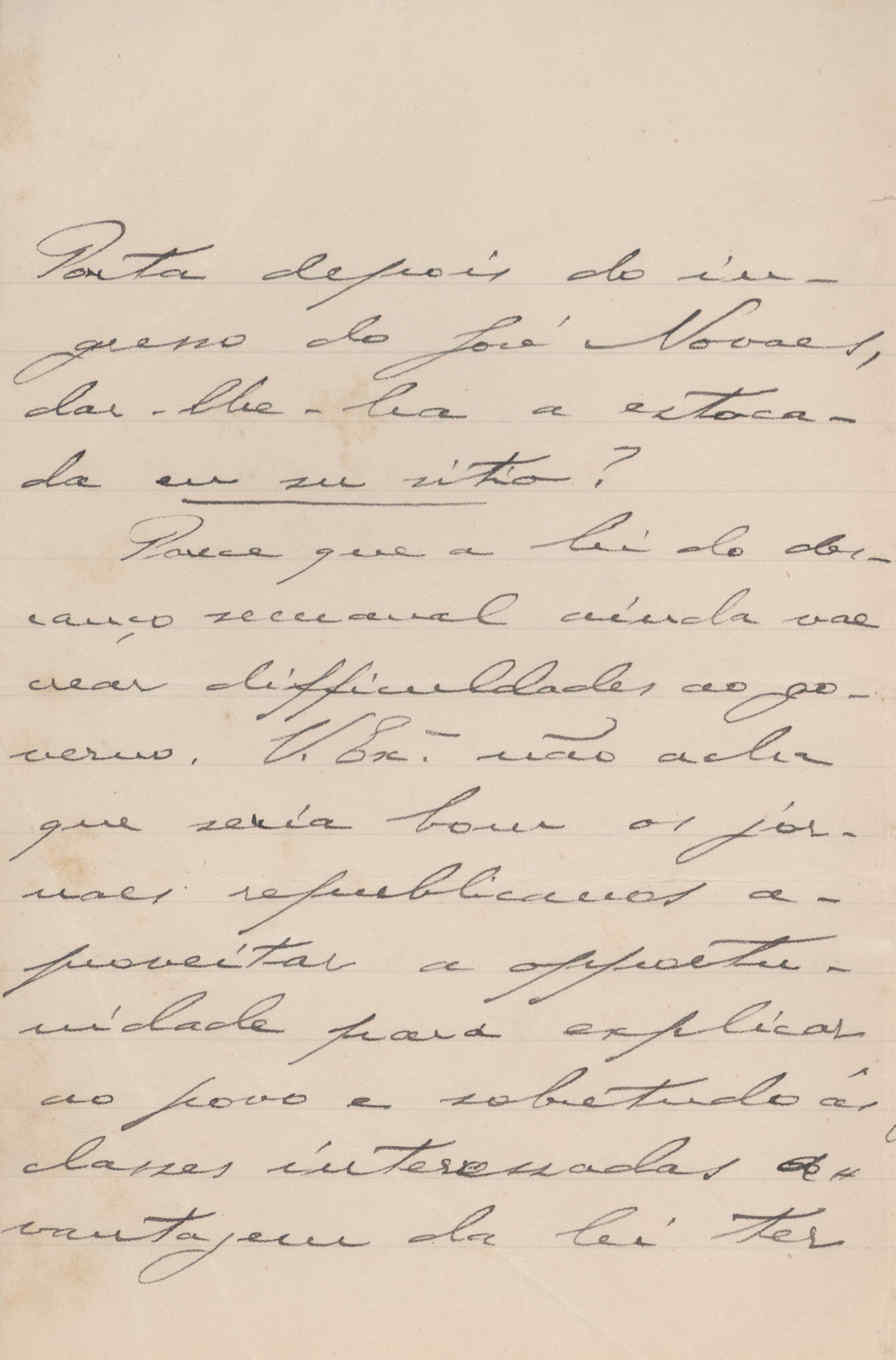 Porta depois do in-
gresso do José Novaes,
dar-lhe-ha a estoca-
da en su sitio?
Parece que a lei do des-
canço semanal ainda vae
crear difficuldades ao go-
verno. V. Ex.ª não acha
que seria bom os jor-
naes republicanos a-
proveitar a opportu-
nidade para explicar
ao povo e sobretudo ás
classes interessadas a
vantajem da lei ter